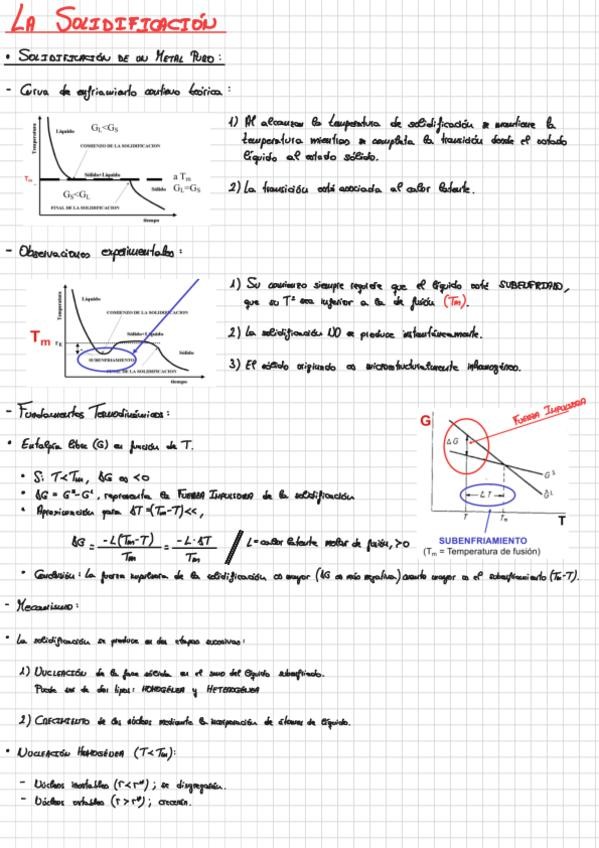 LA SOLIDIFICACIÓN
• SOLIDIFICACIÓN DE UN METAL PURO:
- Curva de enfriamiento continuo teórica:
Temperatura
Líquido
GL<GS
COMIENZO DE LA SOLIDIFICACION
Tm
Sólido+Líquido
a Tm
GL=GS
Sólido
GS<GL
FINAL DE LA SOLIDIFICACION
tiempo
1) Al alcanzar la temperatura de solidificación se mantiene la
temperatura mientras se completa la transición desde el estado
líquido al estado sólido.
2) La transición está asociada al calor latente.
- Observaciones experimentales:
Temperatura
Líquido
COMIENZO DE LA SOLIDIFICACION
Sólido+Líquido
Tm
SUBENFRIAMIENTO
Sólido
FINAL DE LA SOLIDIFICACION
tiempo
1) Su comienzo siempre requiere que el líquido esté SUBENFRIADO,
que su Tª sea inferior a la de fusión (Tm).
2) La solidificación NO se produce instantáneamente.
3) El sólido originado es microestructuralmente inhomogéneo.
- Fundamentos Termodinámicos:
• Entalpía libre (G) en función de T.
• Si T<Tm, ΔG es <0
• ΔG = Gˢ-Gᴸ, representa la FUERZA IMPULSORA de la solidificación
• Aproximación para ΔT=(Tm-T)<<,
ΔG = -L(Tm-T)/Tm = -L·ΔT/Tm // L=calor latente molar de fusión, >0
FUERZA IMPULSORA
G
ΔG
Gˢ
Gᴸ
T
Tm
T
SUBENFRIAMIENTO
(Tm = Temperatura de fusión)
• Conclusión: La fuerza impulsora de la solidificación es mayor (ΔG es más negativa) cuanto mayor es el subenfriamiento (Tm-T).
- Mecanismo:
• La solidificación se produce en dos etapas sucesivas:
1) NUCLEACIÓN de la fase sólida en el seno del líquido subenfriado.
Puede ser de dos tipos: HOMOGÉNEA y HETEROGÉNEA
2) CRECIMIENTO de los núcleos mediante la incorporación de átomos de líquido.
• NUCLEACIÓN HOMOGÉNEA (T<Tm):
- Núcleos inestables (r<r*); se disgregarán.
- Núcleos estables (r>r*); crecerán.